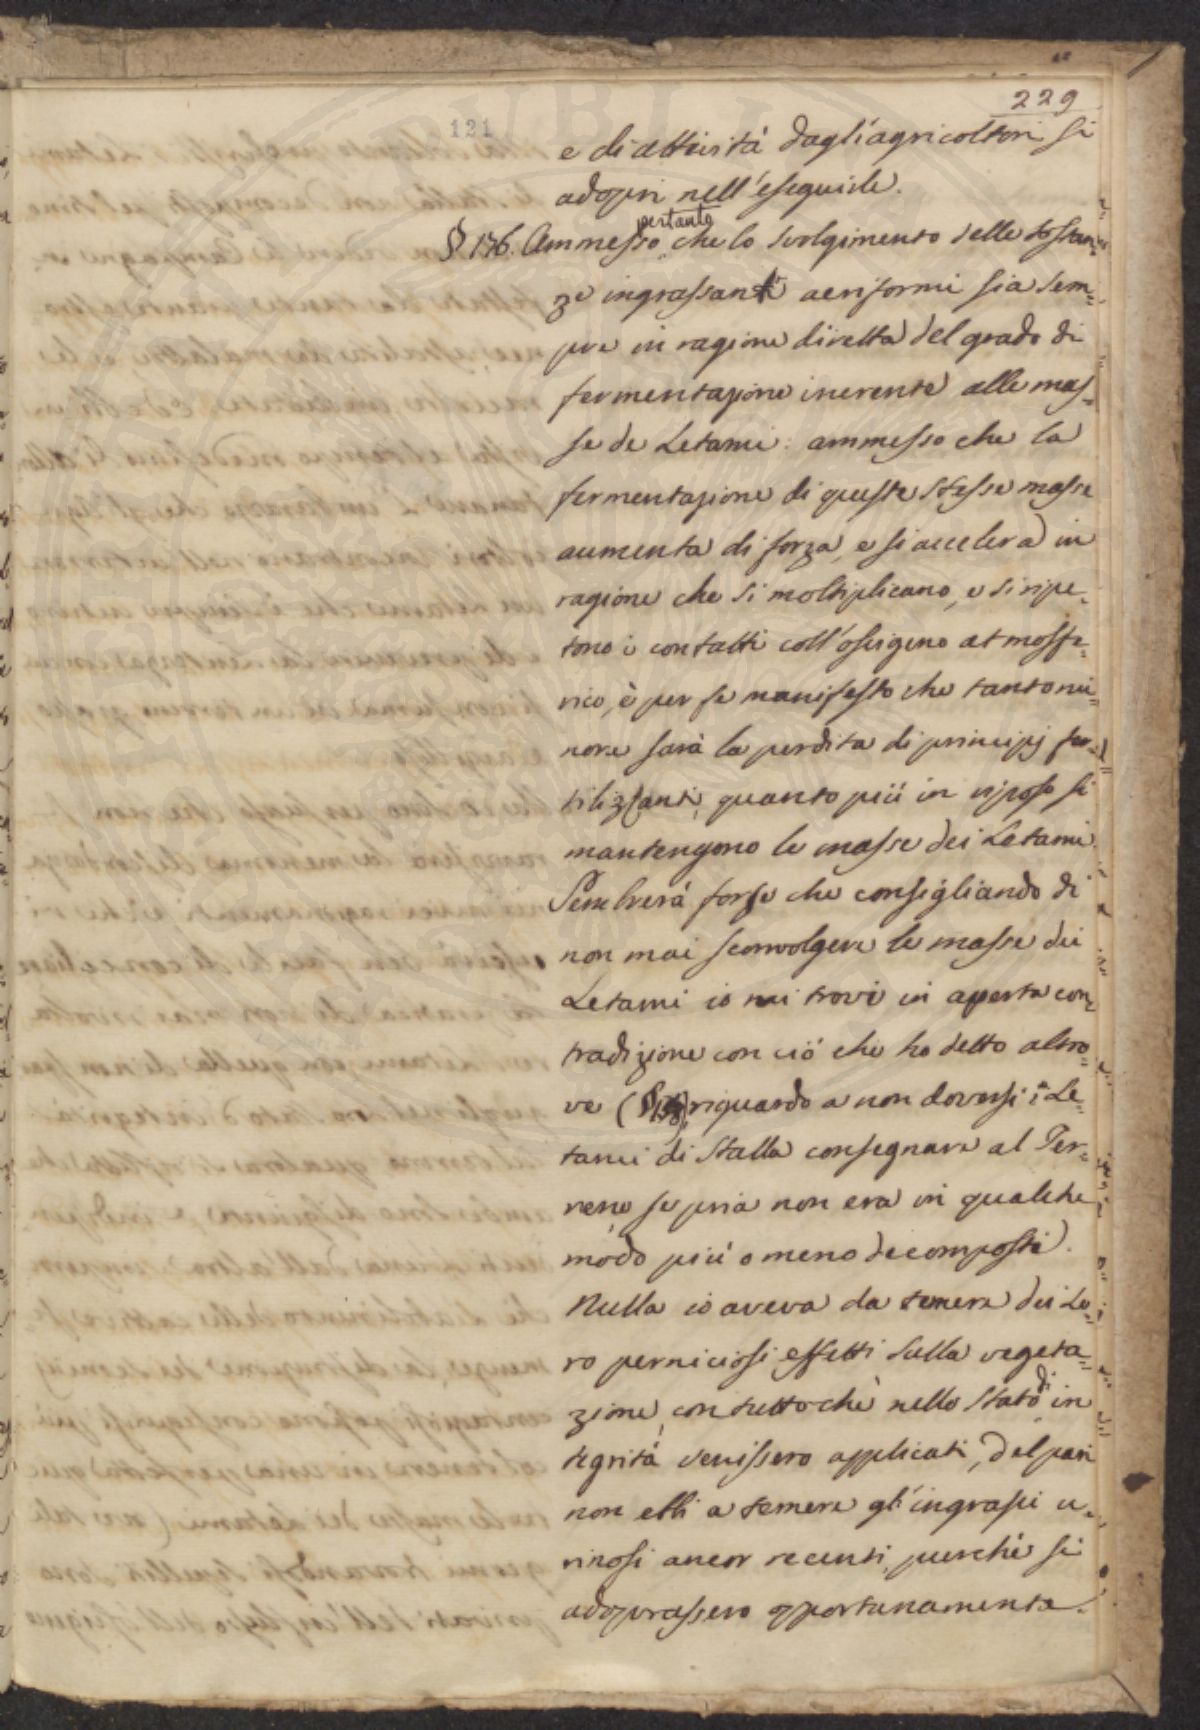 229
121
e di attività dagl'agricoltori si
adopri nell'eseguirle.
pertanto
§ 176. Ammesso che lo svolgimento delle sostan=
ze ingrassanti aeriformi sia sem=
pre in ragione diretta del grado di
fermentazione inerente alle mas=
se de Letami: ammesso che la
fermentazione di queste stesse masse
aumenta di forza, e si accelera in
ragione che si moltiplicano, e si ripe=
tono i contatti coll'ossigeno atmosfe=
rico, è per se manifesto che tanto mi=
nore sarà la perdita di principj fer=
tilizzanti, quanto più in riposo si
mantengono le masse dei Letami.
Sembrerà forse che consigliando di
non mai sconvolgere le masse dei
Letami io mi trovi in aperta con=
tradizione con ciò che ho detto altro=
ve riguardo a non doversi i Le=
tami di Stalla consegnare al Ter=
reno se pria non era in qualche
modo più o meno decomposti.
Nulla io aveva da temere dei Lo=
ro perniciosi effetti sulla vegeta=
zione, contuttochè nello Stato di in
tegrità venissero applicati, del pari
non ebbi a temere gl'ingrassi u=
rinosi ancor recenti, purchè si
adoprassero opportunamente.